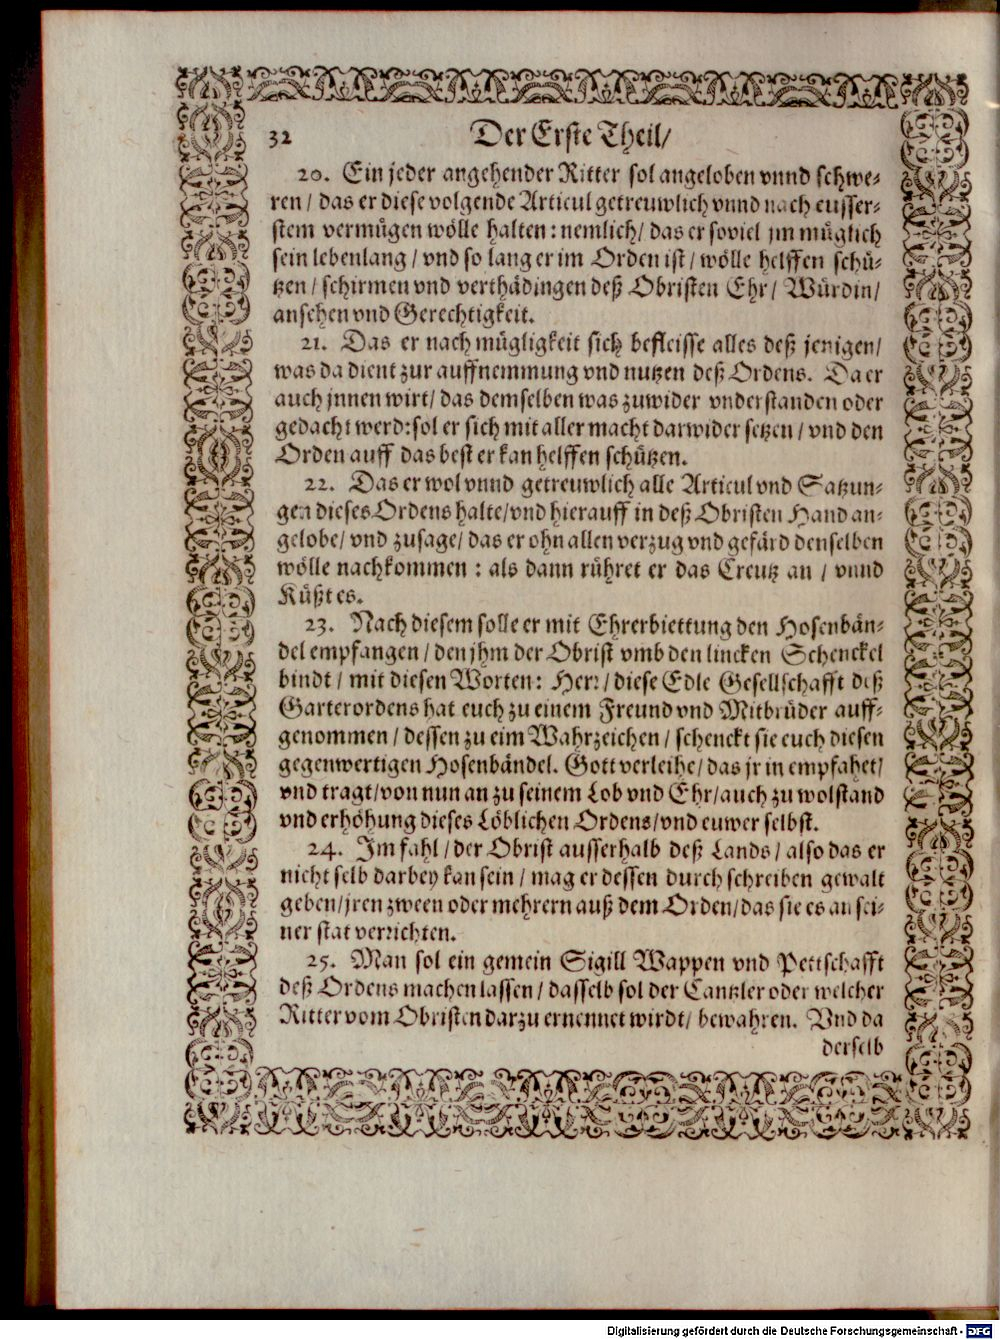 32 Der Erste Theil/
20. Ein jeder angehender Ritter sol angeloben vnnd schwe-
ren / das er diese volgende Articul getreuwlich vnnd nach eusser-
stem vermügen wölle halten: nemlich / das er soviel jm müglich
sein lebenlang / vnd so lang er im Orden ist / wölle helffen schü-
tzen / schirmen vnd verthädingen deß Obristen Ehr / Würdin /
ansehen vnd Gerechtigkeit.
21. Das er nach mügligkeit sich befleisse alles deß jenigen /
was da dient zur auffnemmung vnd nutzen deß Ordens. Da er
auch jnnen wirt / das demselben was zuwider vnderstanden oder
gedacht werd: sol er sich mit aller macht darwider setzen / vnd den
Orden auff das best er kan helffen schützen.
22. Das er wol vnnd getreuwlich alle Articul vnd Satzun-
gen dieses Ordens halte / vnd hierauff in deß Obristen Hand an-
gelobe / vnd zusage / das er ohn allen verzug vnd gefärd denselben
wölle nachkommen : als dann rühret er das Creutz an / vnnd
Küßt es.
23. Nach diesem solle er mit Ehrerbiettung den Hosenbän-
del empfangen / den jhm der Obrist vmb den lincken Schenckel
bindt / mit diesen Worten: Herr / diese Edle Gesellschafft deß
Garterordens hat euch zu einem Freund vnd Mitbrüder auff-
genommen / dessen zu eim Wahrzeichen / schenckt sie euch diesen
gegenwertigen Hosenbändel. Gott verleihe / das jr in empfahet /
vnd tragt / von nun an zu seinem Lob vnd Ehr / auch zu wolstand
vnd erhöhung dieses Löblichen Ordens / vnd euwer selbst.
24. Im fahl / der Obrist ausserhalb deß Lands / also das er
nicht selb darbey kan sein / mag er dessen durch schreiben gewalt
geben / jren zween oder mehrern auß dem Orden / das sie es an sei-
ner stat verrichten.
25. Man sol ein gemein Sigill Wappen vnd Pettschafft
deß Ordens machen lassen / dasselb sol der Cantzler oder welcher
Ritter vom Obristen darzu ernennet wirdt / bewahren. Vnd da
derselb
Digitalisierung gefördert durch die Deutsche Forschungsgemeinschaft - DFG